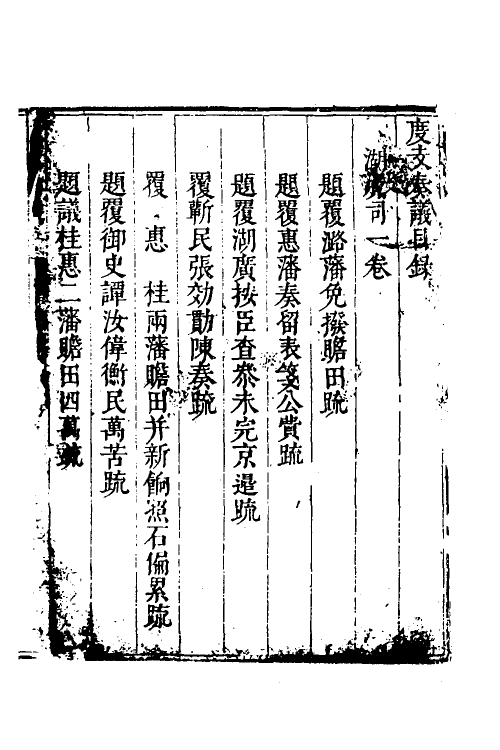 度支奏議目錄
湖廣司一卷
題覆潞藩免撥贍田疏
題覆惠藩奏留表箋公費疏
題覆湖廣按臣查叅未完京邊疏
覆蘄民張効勳陳奏疏
覆惠 桂兩藩贍田并新餉照石偏累疏
題覆御史譚汝偉衡民萬苦疏
題議桂惠二藩贍田四萬疏